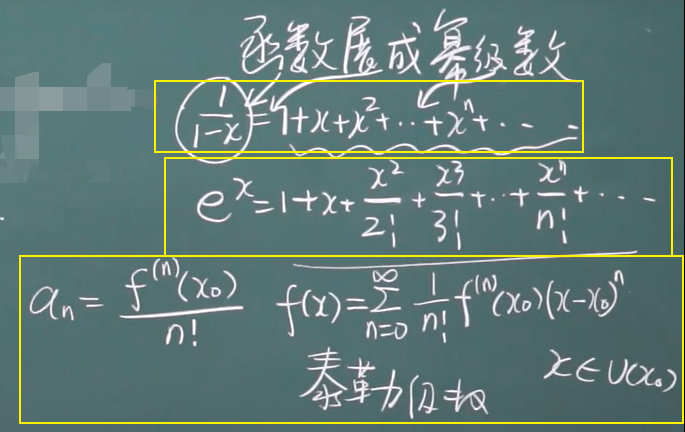 函数展成幂级数
1/(1-x) = 1+x+x²+⋯+xⁿ+⋯
eˣ = 1+x+x²/2!+x³/3!+⋯+xⁿ/n!+⋯
aₙ = f⁽ⁿ⁾(x₀)/n!  f(x) = ∑_{n=0}^{∞} 1/n! f⁽ⁿ⁾(x₀)(x-x₀)ⁿ
泰勒级数  x∈U(x₀)